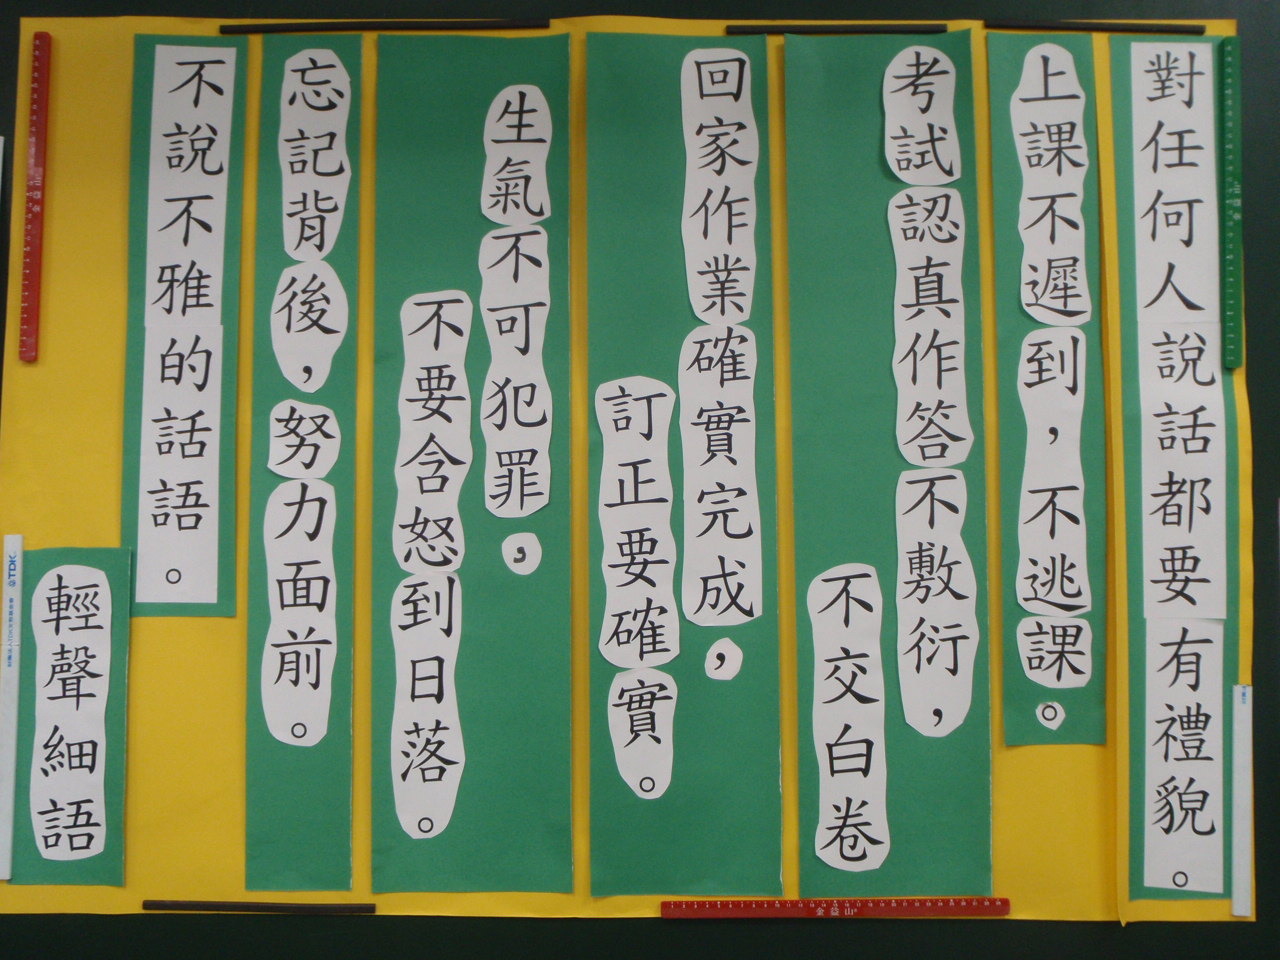 對任何人說話都要有禮貌。
上課不遲到，不逃課。
考試認真作答不敷衍，
不交白卷
回家作業確實完成，
訂正要確實。
生氣不可犯罪，
不要含怒到日落。
忘記背後，努力面前。
不說不雅的話語。
輕聲細語
TDK
金益山